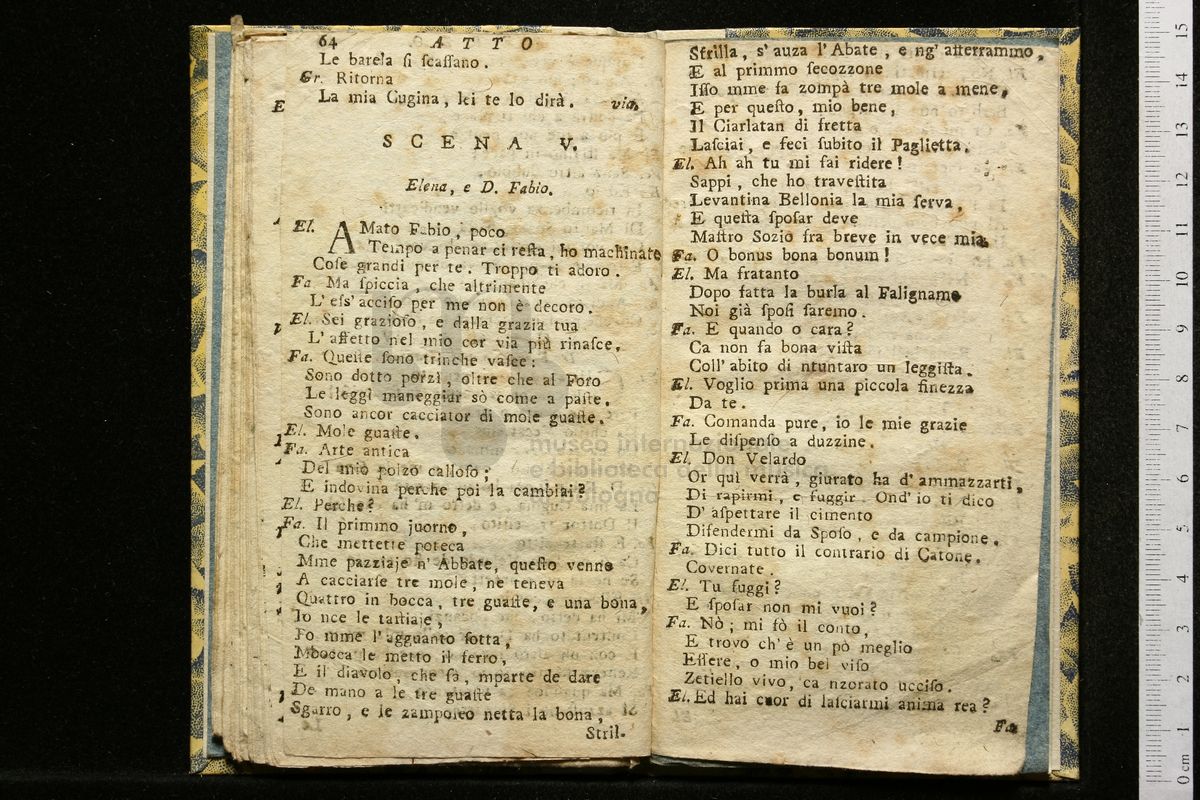 64 ATTO
Le barela ſi ſcaſſano.
Gr. Ritorna
E La mia Cugina, lei te lo dirà. via.
SCENA V.
Elena, e D. Fabio.
El. AMato Fabio, poco
Tempo a penar ci reſta, ho machinate
Coſe grandi per te. Troppo ti adoro.
Fa Ma ſpiccia, che altrimente
L' eſs' acciſo per me non è decoro.
El. Sei grazioſo, e dalla grazia tua
L' affetto nel mio cor via più rinaſce.
Fa. Queſte ſono trinche vaſce:
Sono dotto porzì, oltre che al Foro
Le leggi maneggiar sò come a paſte.
Sono ancor cacciator di mole guaſte.
El. Mole guaſte.
Fa. Arte antica
Del mio polzo calloſo;
E indovina perche poi la cambiai?
El. Perche?
Fa. Il primmo juorno,
Che mettette poteca
Mme pazziaje n' Abbate, queſto venne
A cacciarſe tre mole, ne teneva
Quattro in bocca, tre guaſte, e una bona,
Io nce le taſtiaje,
Po mme l' agguanto ſotta,
Mbocca le metto il ferro,
E il diavolo, che fà, mparte de dare
De mano a le tre guaſte
Sgarro, e le zampoleo netta la bona,
Stril-
Strilla, s' auza l' Abate, e ng' afferrammo,
E al primmo ſecozzone
Iſſo mme fa zompà tre mole a mene,
E per queſto, mio bene,
Il Ciarlatan di fretta
Laſciai, e feci ſubito il Paglietta.
El. Ah ah tu mi fai ridere!
Sappi, che ho traveſtita
Levantina Bellonia la mia ſerva,
E queſta ſpoſar deve
Maſtro Sozio fra breve in vece mia.
Fa. O bonus bona bonum!
El. Ma fratanto
Dopo fatta la burla al Falignamo
Noi già ſpoſi ſaremo.
Fa. E quando o cara?
Ca non fa bona viſta
Coll' abito di ntuntaro un leggiſta.
El. Voglio prima una piccola finezza
Da te.
Fa. Comanda pure, io le mie grazie
Le diſpenſo a duzzine.
El. Don Velardo
Or quì verrà, giurato ha d' ammazzarti,
Di rapirmi, e fuggir. Ond' io ti dico
D' aſpettare il cimento
Difendermi da Spoſo, e da campione.
Fa. Dici tutto il contrario di Catone.
Covernate.
El. Tu fuggi?
E ſpoſar non mi vuoi?
Fa. Nò; mi fò il conto,
E trovo ch' è un pò meglio
Eſſere, o mio bel viſo
Zetiello vivo, ca nzorato ucciſo.
El. Ed hai cuor di laſciarmi anima rea?
Fa.
museo intern
e biblioteca della musica
Bologna
0 cm 1 2 3 4 5 6 7 8 9 10 11 12 13 14 15